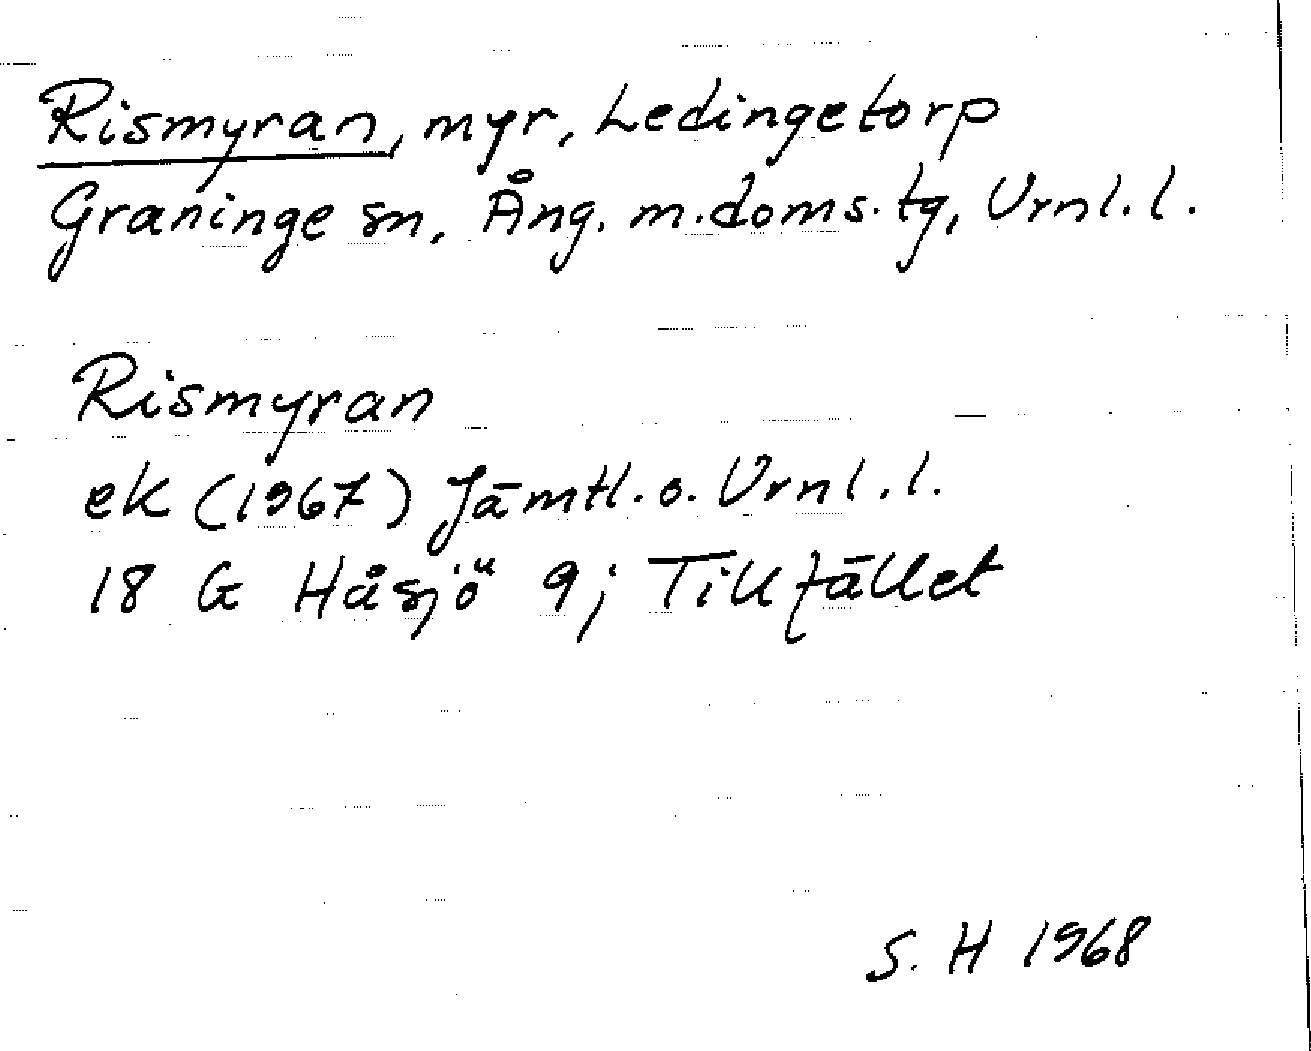 Rismyran, myr, Ledingetorp
Graninge sn, Ång. m. doms. tg, Vrnl. l.
Rismyran
ek (1967) Jämtl. o. Vrnl. l.
18 G Håsjö 9j Tillfället
S. H 1968